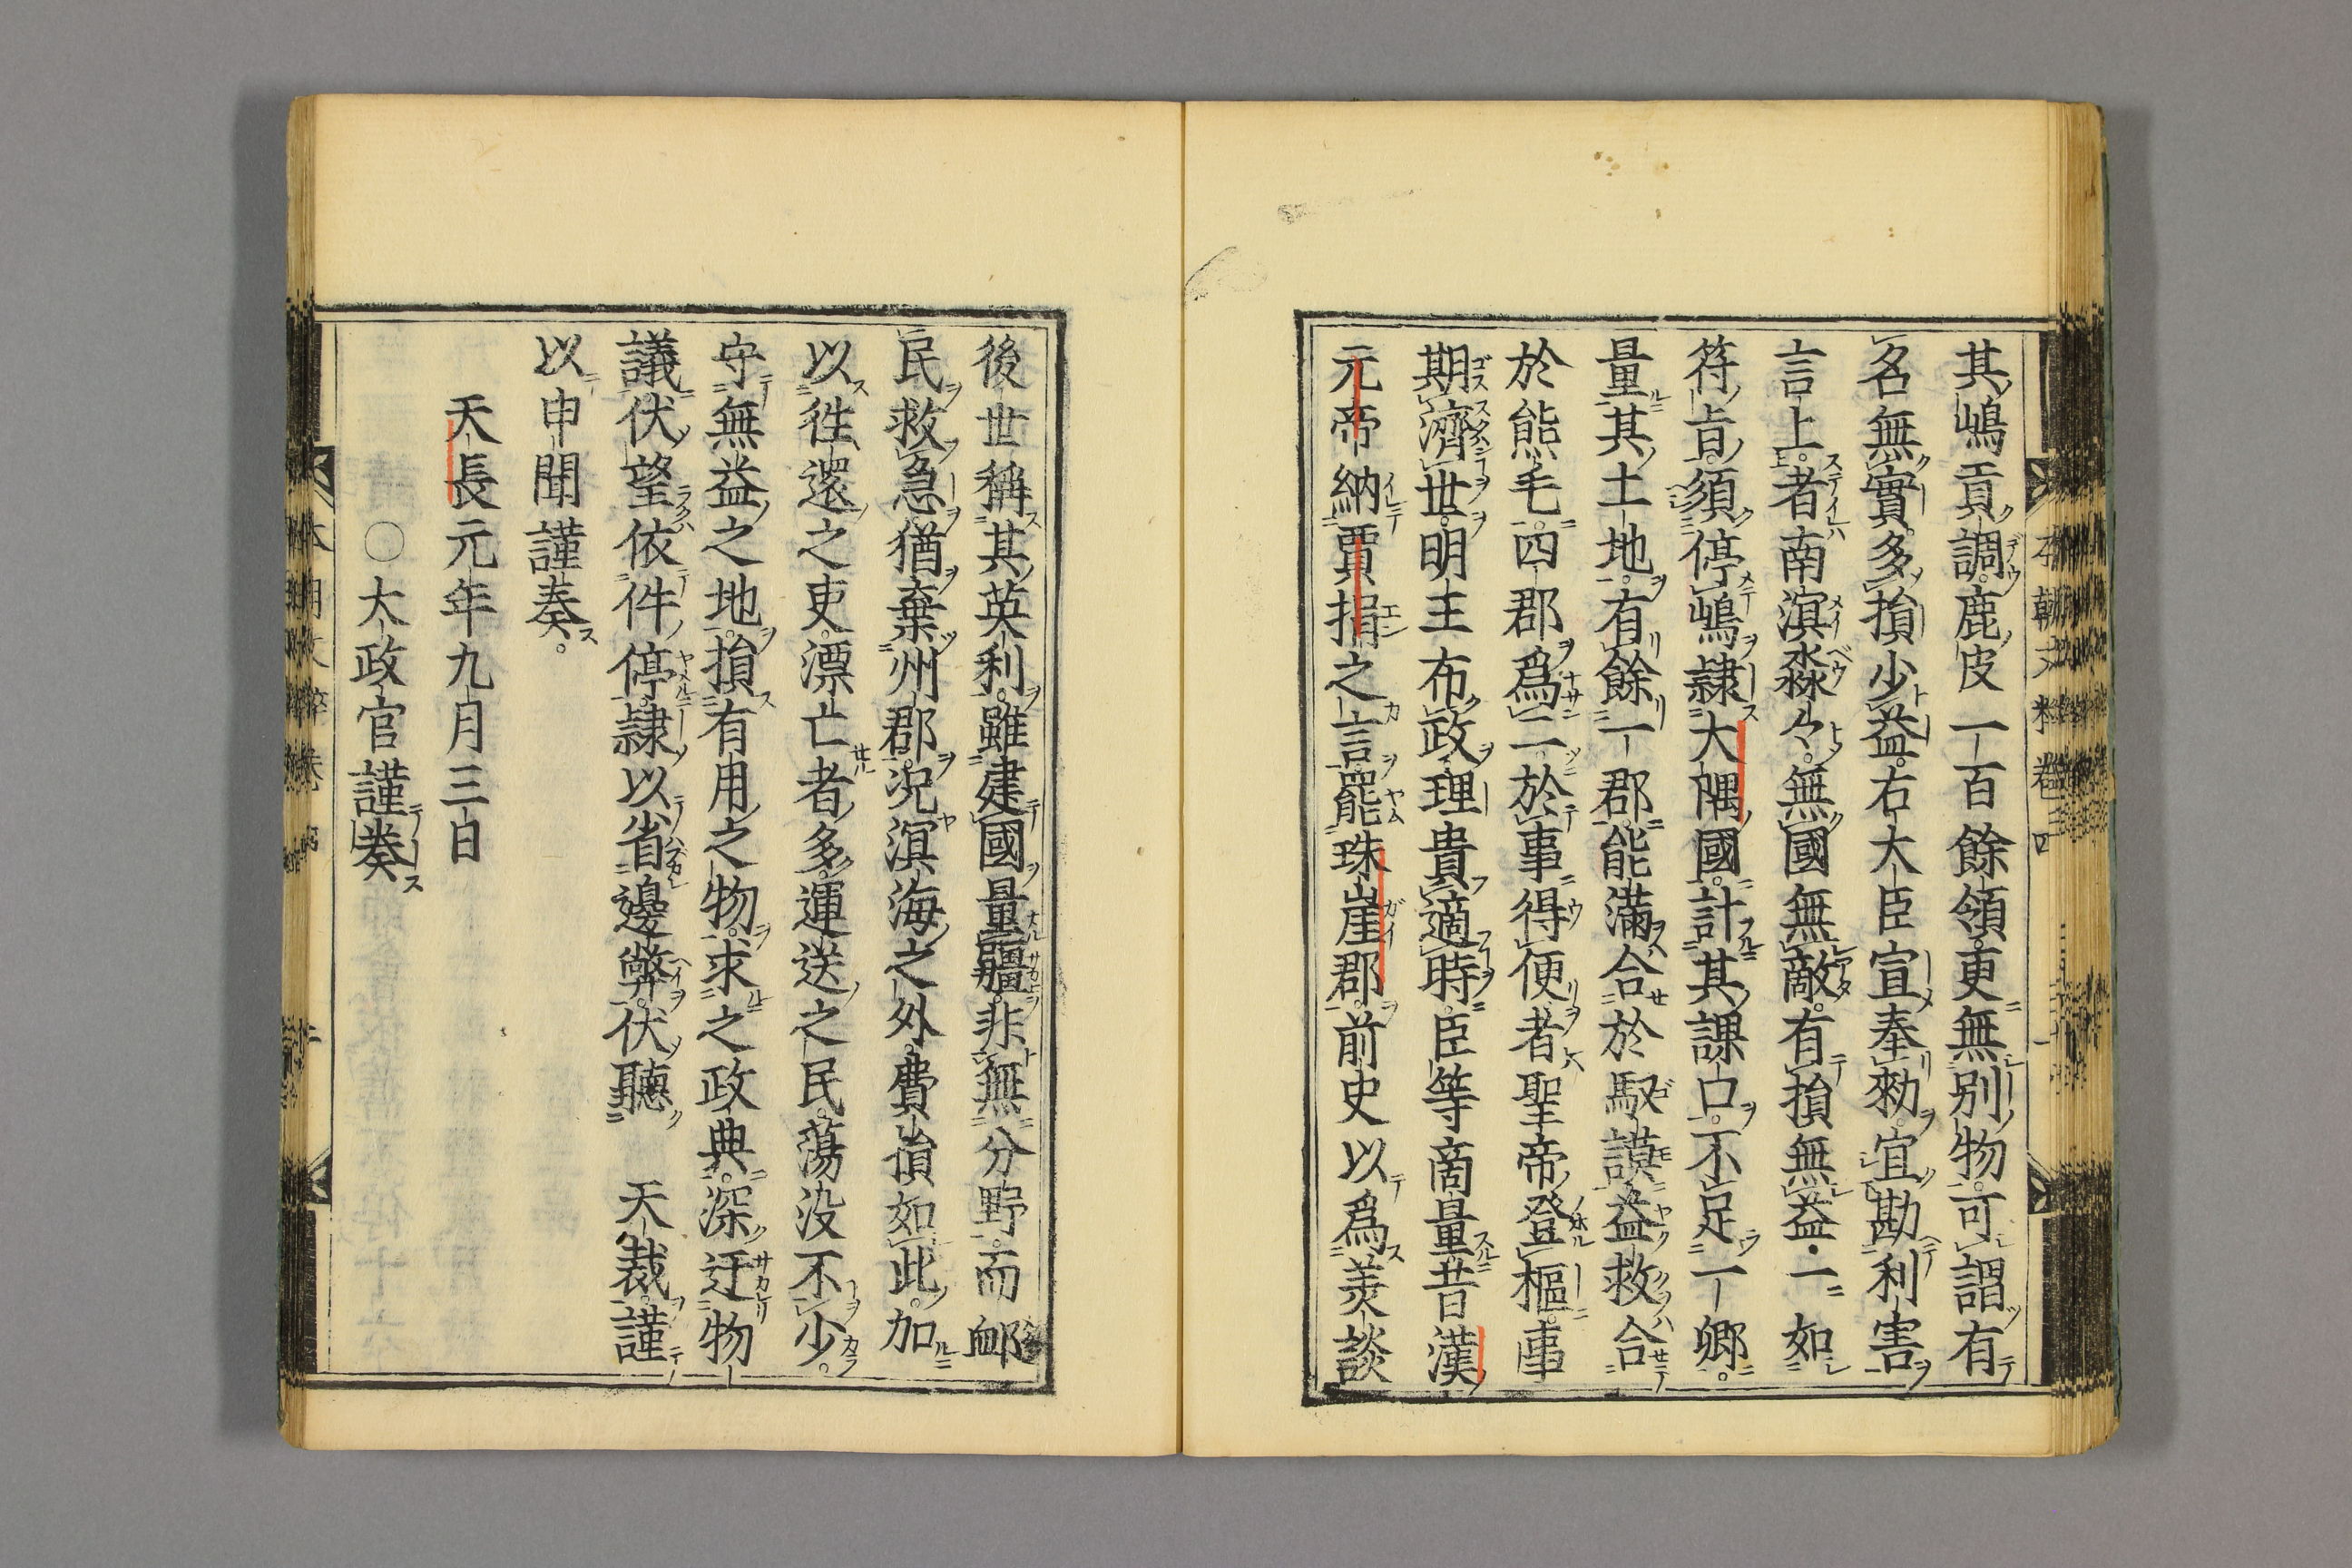 其嶋貢調鹿皮一百餘領更無別物可謂有
名無實多損少益右大臣宣奉勅宜勘利害
言上者南溟淼々無國無敵有損無益一如
符旨須停嶋隷大隅國計其課口不足一郷
量其土地有餘一郡能滿合於馭謨益救合
於熊毛四郡爲二於事得便者聖帝登樞事
期濟世明王布政理貴適時臣等商量昔漢
元帝納賈捐之言罷珠崖郡前史以爲美談
後世稱其英利雖建國量疆非無分野而邮
民救急猶棄州郡况溟海之外費損如此加
以徃還之吏漂亡者多運送之民蕩没不少
守無益之地損有用之物求之政典深迂物
議伏望依件停隷以省邊弊伏聽 天裁謹
以申聞謹奏
天長元年九月三日
〇太政官謹奏